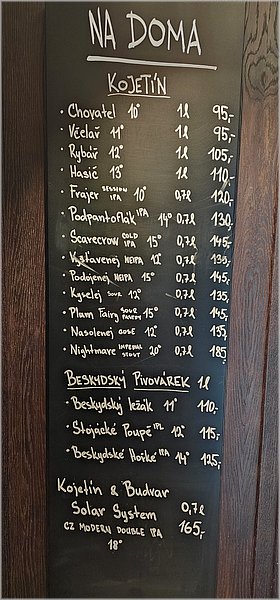 NA DOMA
KOJETÍN
• Chovatel 10° 1l 95,-
• Včelař 11° 1l 95,-
• Rybář 12° 1l 105,-
• Hasič 13° 1l 110,-
• Frajer SESSION IPA 10° 0,7l 120,-
• Podpantoflák IPA 14° 0,7l 130,-
• Scarecrow COLD IPA 15° 0,7l 145,-
• Vyšťavenej NEIPA 12° 0,7l 130,-
• Podojenej NEIPA 15° 0,7l 145,-
• Kyselej SOUR 12° 0,7l 135,-
• Plum Fairy SOUR PASTRY 15° 0,7l 145,-
• Nasolenej GOSE 12° 0,7l 135,-
• Nightmare IMPERIAL STOUT 20° 0,7l 185,-
BESKYDSKÝ PIVOVÁREK 1l
• Beskydský ležák 11° 110,-
• Stojácké Poupě IPL 12° 115,-
• Beskydské Hořké IPA 14° 125,-
Kojetín & Budvar
Solar System 0,7l
CZ MODERN DOUBLE IPA 165,-
18°